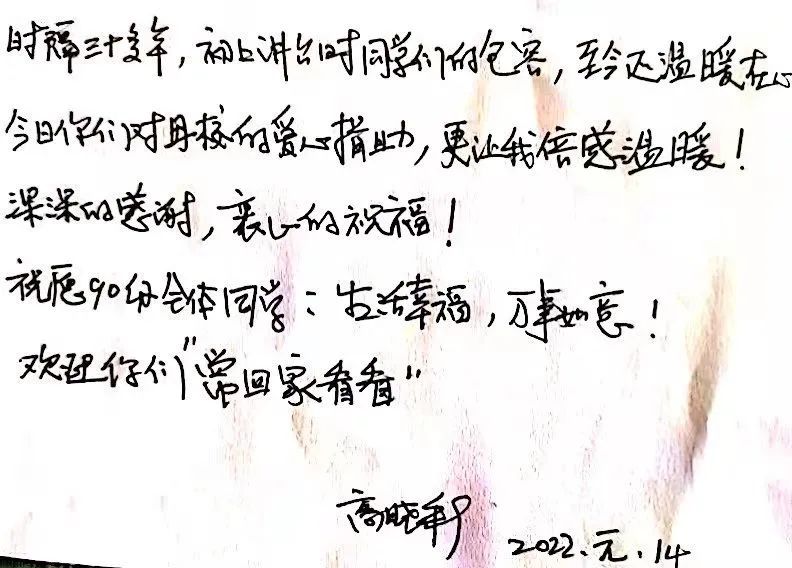 时隔三十多年，初上讲台时同学们的包容，至今还温暖在心
今日你们对母校的爱心捐助，更让我倍感温暖！
深深的感谢，衷心的祝福！
祝愿90级全体同学：生活幸福，万事如意！
欢迎你们"常回家看看"
高晓 2022.元.14